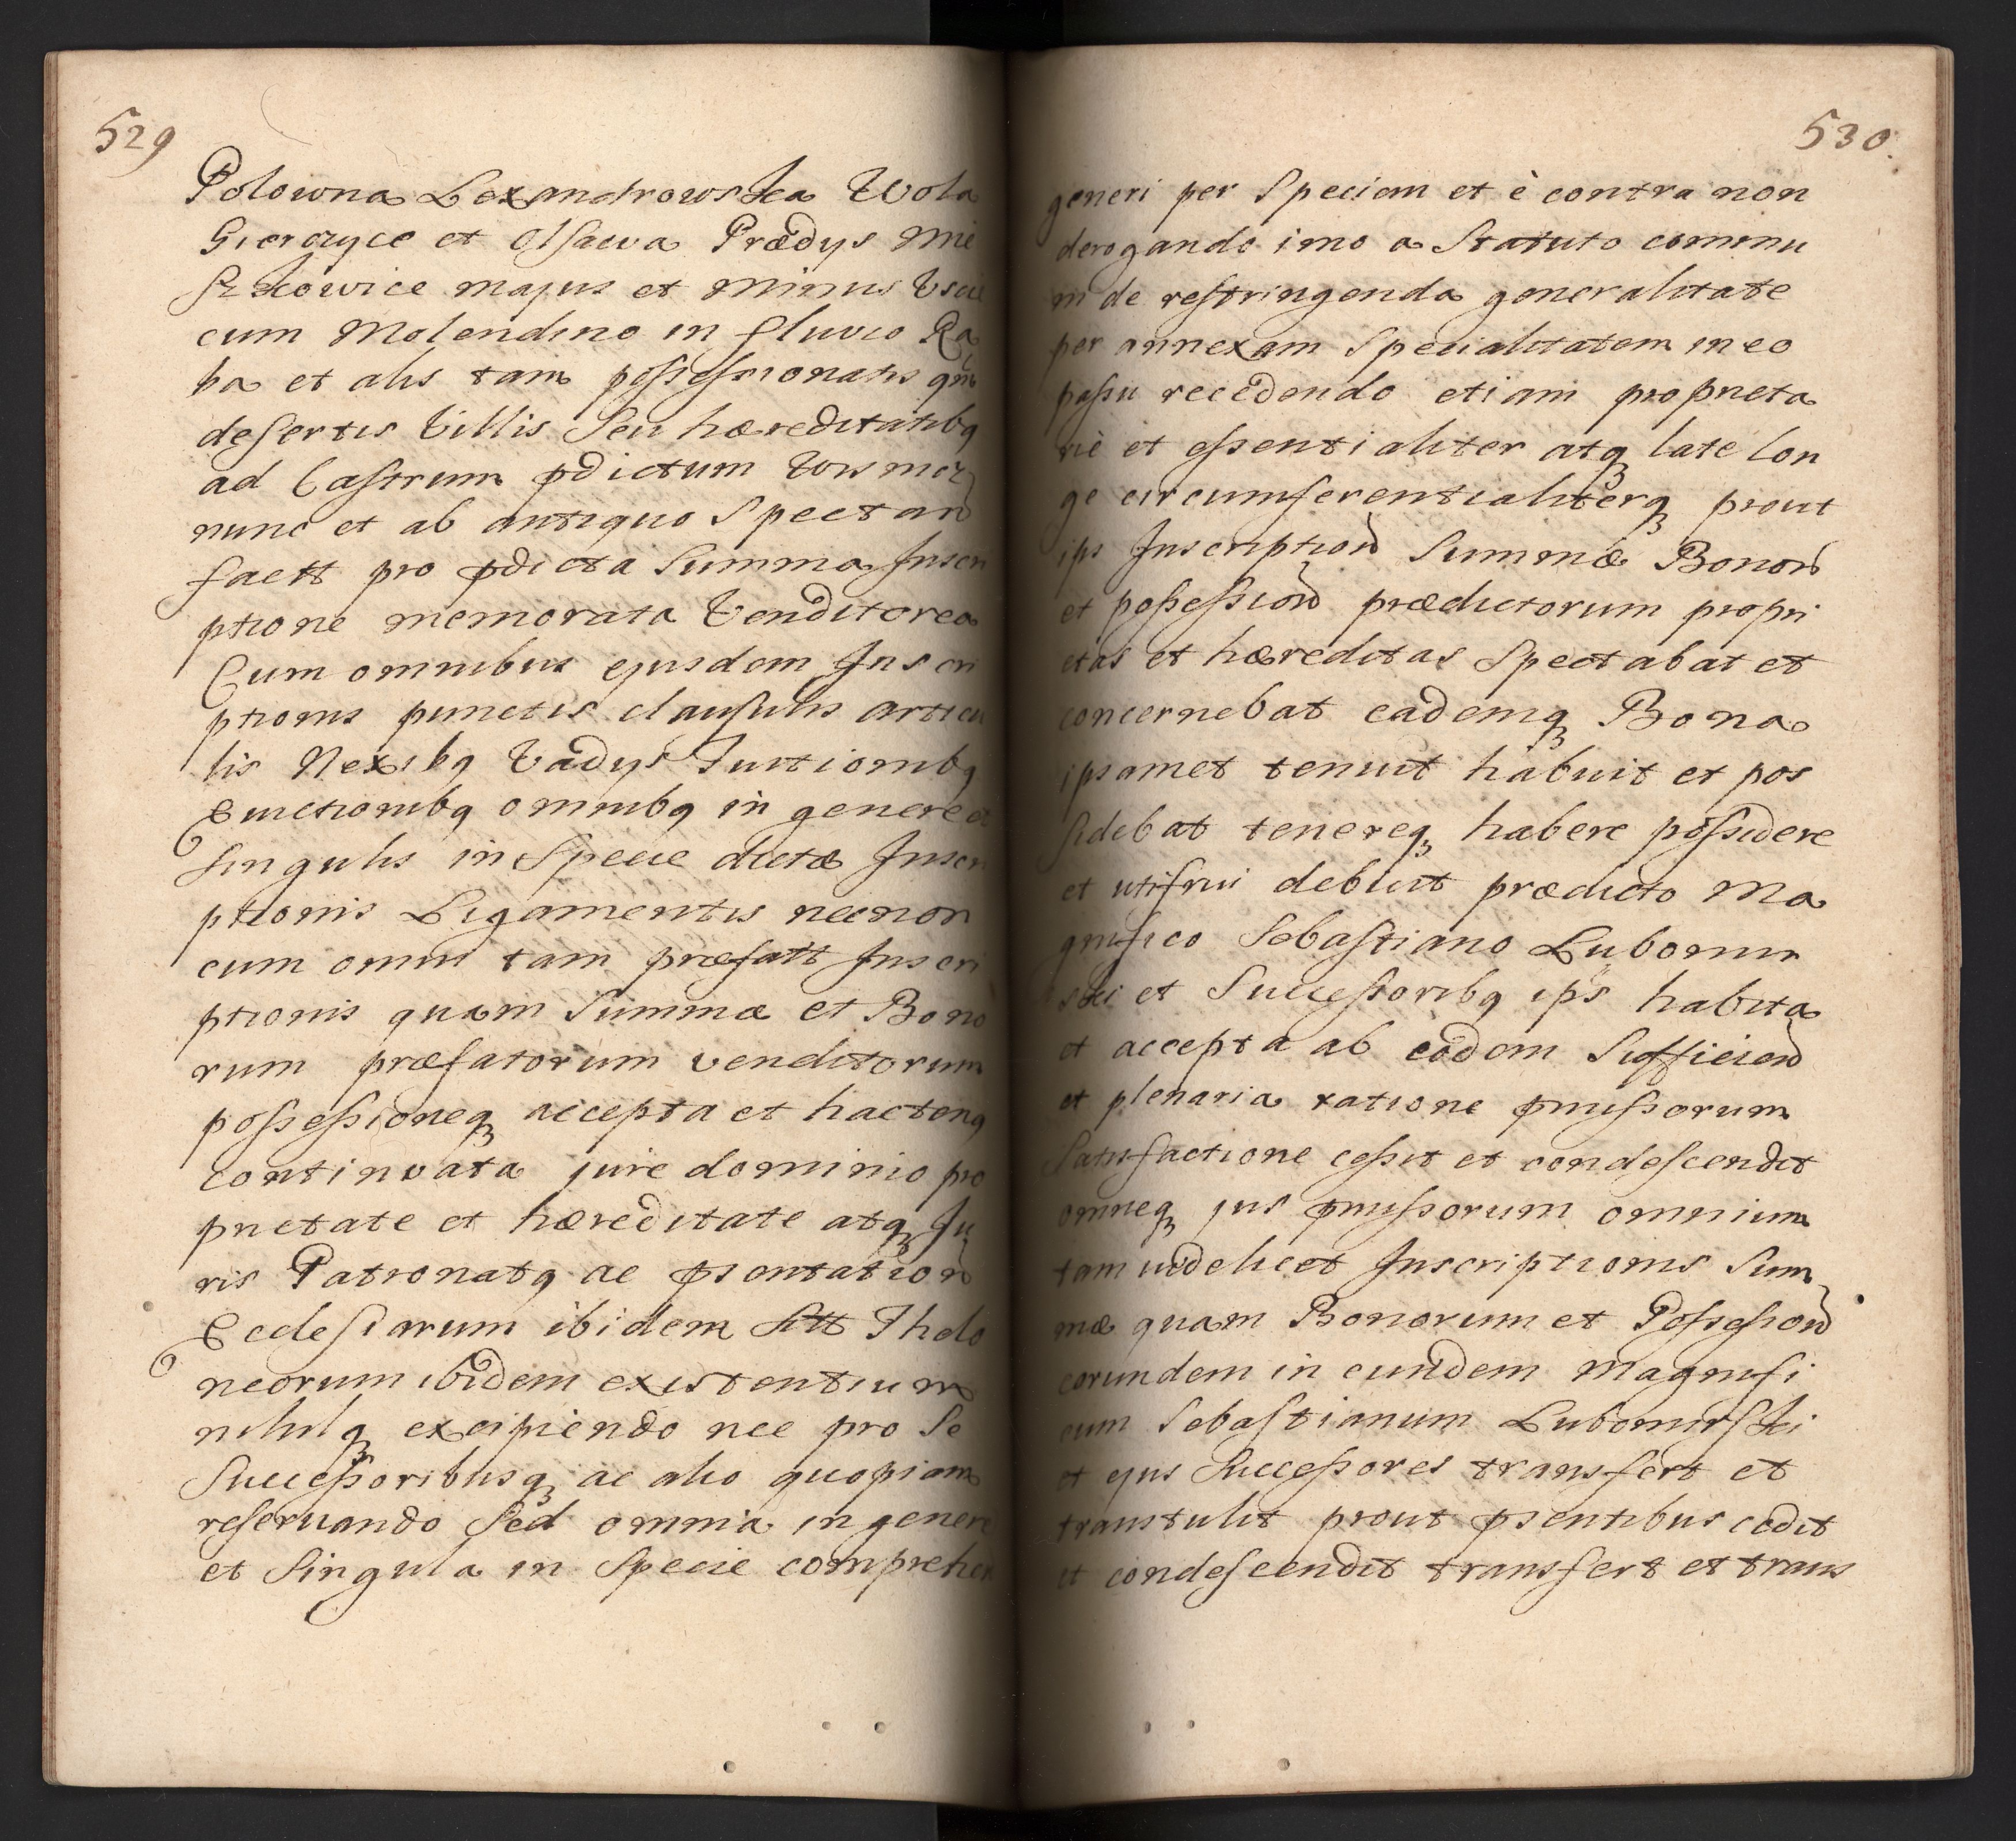 529
Polowna Lexandrowska Wola
Gierczyce et Olsawa Prædys Mie
szkowice majus et minus Uscie
cum Molendino in fluvio Ra
ba et alis tam possessionatis qm
desertis Villis Seu hæreditatibq
ad Castrum pdictum Wismicz
nunc et ab antiquo Spectan
faett pro pdicta Summa Inscri
ptione memorata Venditorea
Cum omnibus ejusdem Inscri
ptionis punctis clausulis articu
lis Nexibq Vadys
Evictionibq omnibq in genere et
singulis in Specie dictæ Inscri
ptionis Ligamentis necnon
cum omni tam præfatt Inscri
ptionis quam Summæ et Bono
rum præfatorum venditorum
possessioneq accepta et hactenq
continvata jure dominio pro
prietate et hæreditate atq Ju
ris Patronatq ac psentation
Ecclesiarum ibidem Sitt Thelo
neorum ibidem existentium
nihilq excipiendo nec pro Se
Successoribusq ac alio quopiam
reservando Sed omnia in genere
et Singula in Specie comprehen
530.
generi per Speciem et è contra non
derogando imo a Statuto commu
ni de restringenda generalitate
per annexam Specialitatem in eo
passu recedendo etiam proprieta
riè et essentialiter atq late lon
ge circumferentialiterq prout
ips Inscription Summæ Bonor
et possession prædictorum propri
etas et hæreditas Spectabat et
concernebat eademq Bona
ipsamet tenuit habuit et pos
sidebat tenereq habere possidere
et utifrui debuit prædicto Ma
gnifico Sebastiano Lubomir
ski et Successoribq ips habita
et accepta ab eodem Sufficien
et plenaria ratione pmissorum
Satisfactione cessit et condescendit
omneq jus pmissorum omnium
tam videlicet Inscriptionis Sum
mæ quam Bonorum et Possession
eorundem in eundem Magnifi
cum Sebastianum Lubomirski
et ejus Successores transfert et
transtulit prout psentibus cedit
et condescendit transfert et trans